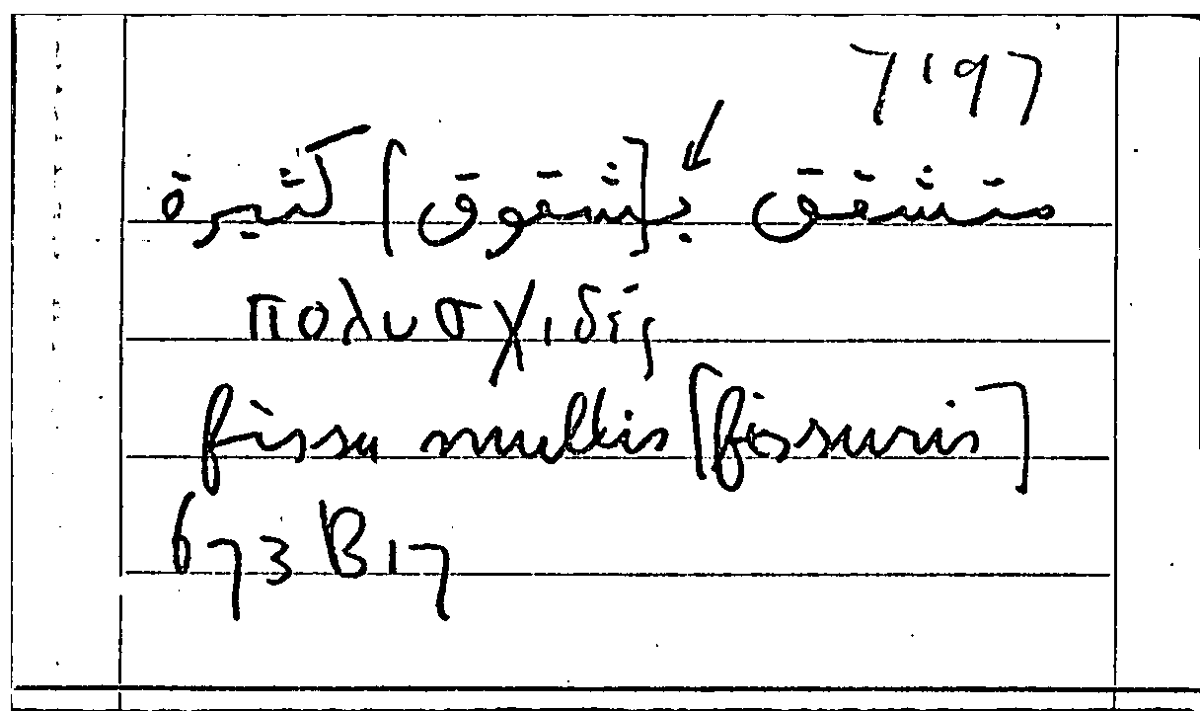 7197
متشقق بـ[شقوق] كثيرة
πολυσχιδής
fissa multis [fissuris]
673 B 17